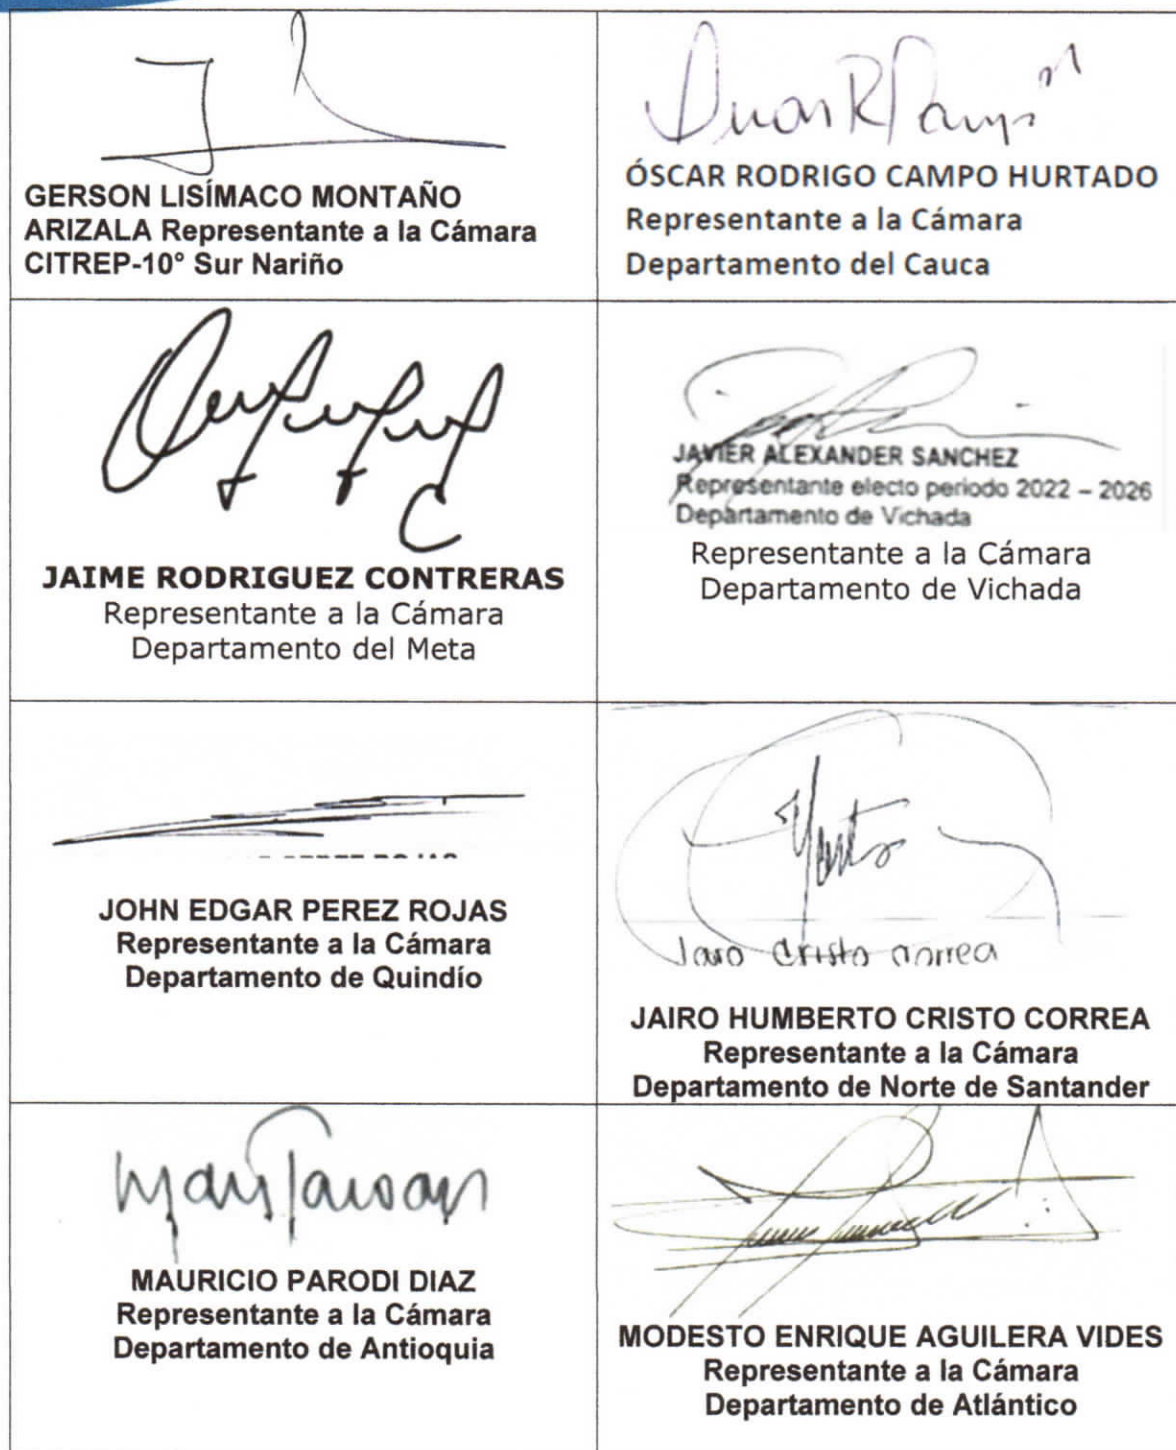 GERSON LISÍMACO MONTAÑO
ARIZALA Representante a la Cámara
CITREP-10° Sur Nariño
ÓSCAR RODRIGO CAMPO HURTADO
Representante a la Cámara
Departamento del Cauca
JAIME RODRIGUEZ CONTRERAS
Representante a la Cámara
Departamento del Meta
JAVIER ALEXANDER SANCHEZ
Representante electo periodo 2022 – 2026
Departamento de Vichada
Representante a la Cámara
Departamento de Vichada
JOHN EDGAR PEREZ ROJAS
Representante a la Cámara
Departamento de Quindío
Jairo Cristo Correa
JAIRO HUMBERTO CRISTO CORREA
Representante a la Cámara
Departamento de Norte de Santander
MAURICIO PARODI DIAZ
Representante a la Cámara
Departamento de Antioquia
MODESTO ENRIQUE AGUILERA VIDES
Representante a la Cámara
Departamento de Atlántico